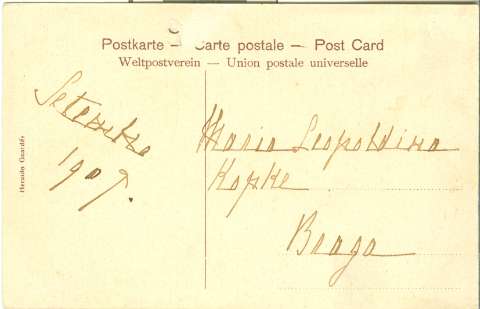 Postkarte — Carte postale — Post Card
Weltpostverein — Union postale universelle
Setembro
1907.
Maria Leopoldina
Kopke
Braga